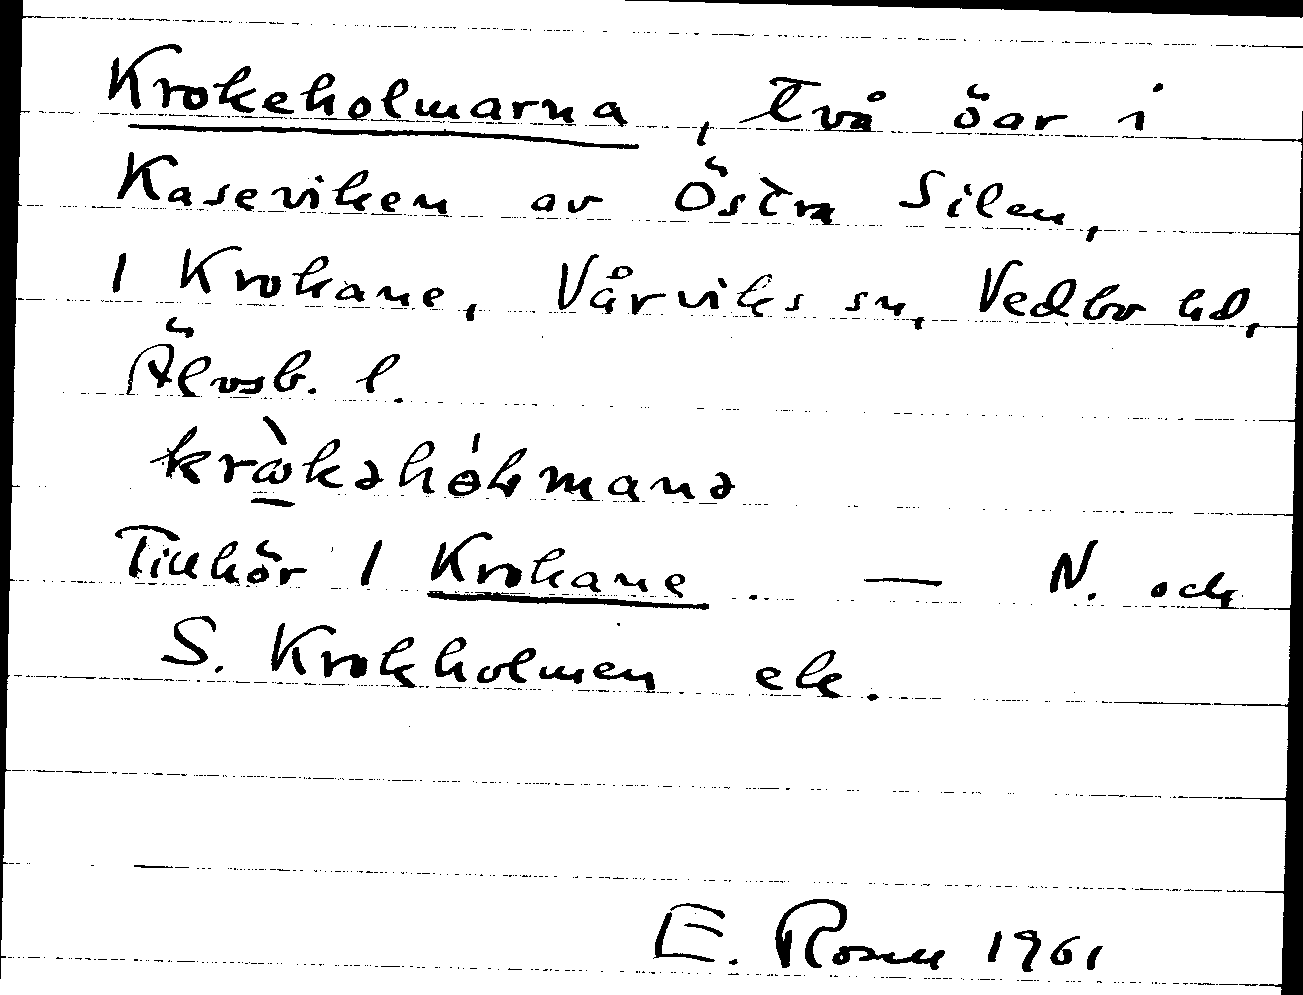 Krokeholmarna, två öar i
Kaseviken av Östra Silen,
1 Krokane, Vårviks sn, Vedbo hd,
Älvsb. l.
Tillhör 1 Krokane. — N. och
S. Krokholmen ek.
E. Rosell 1961